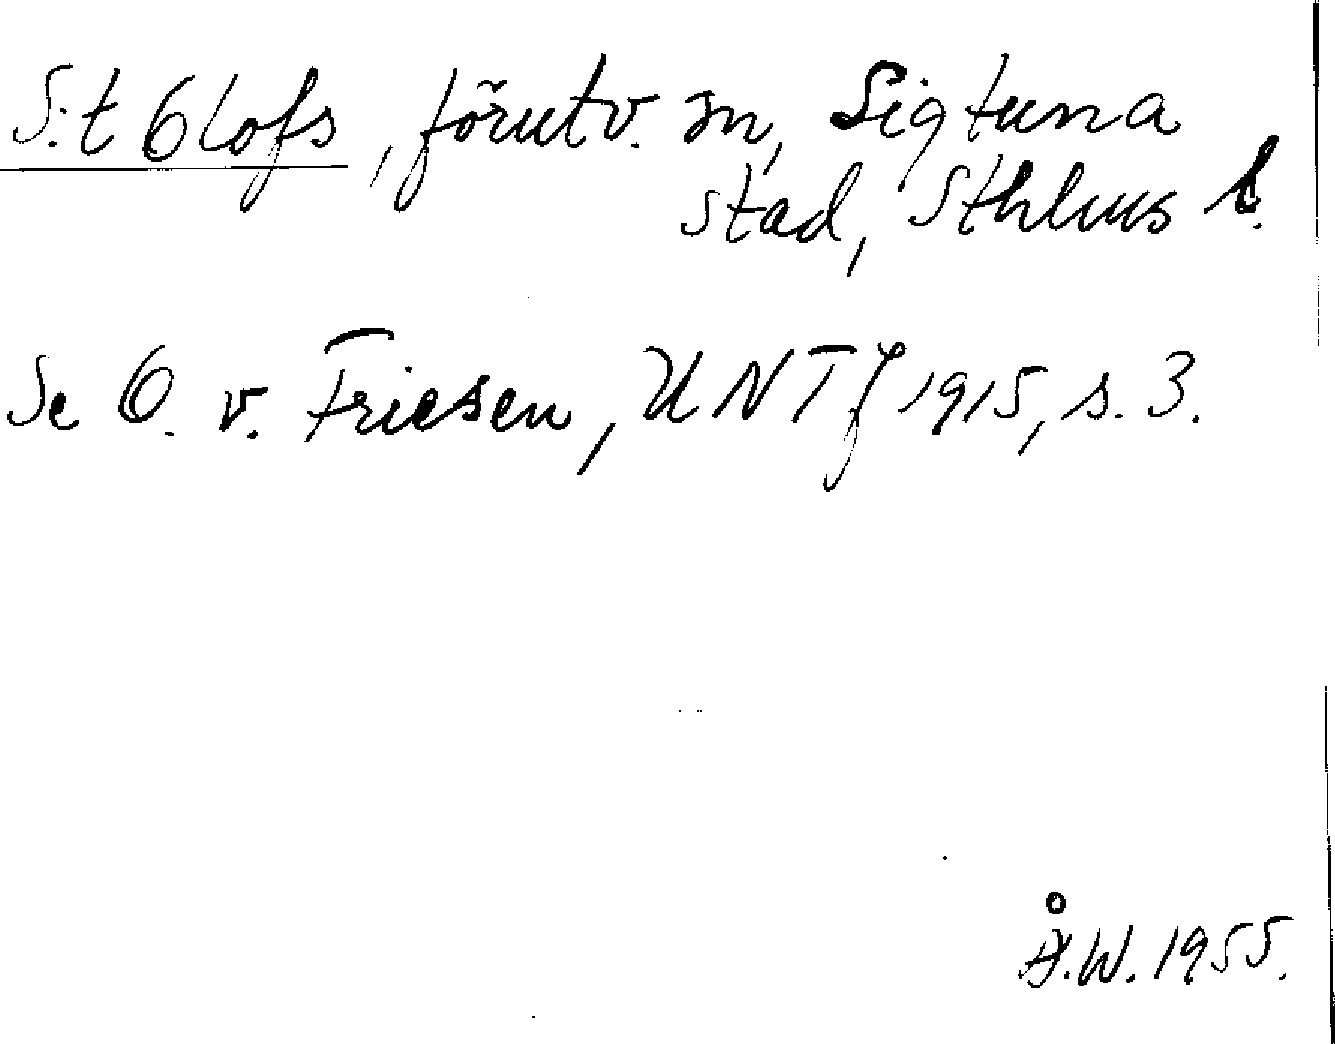 S:t Olofs, förutv. sn, Sigtuna
stad, Sthlms l.
Se O. v. Friesen, UNT 1915, s. 3.
Å.W. 1955.